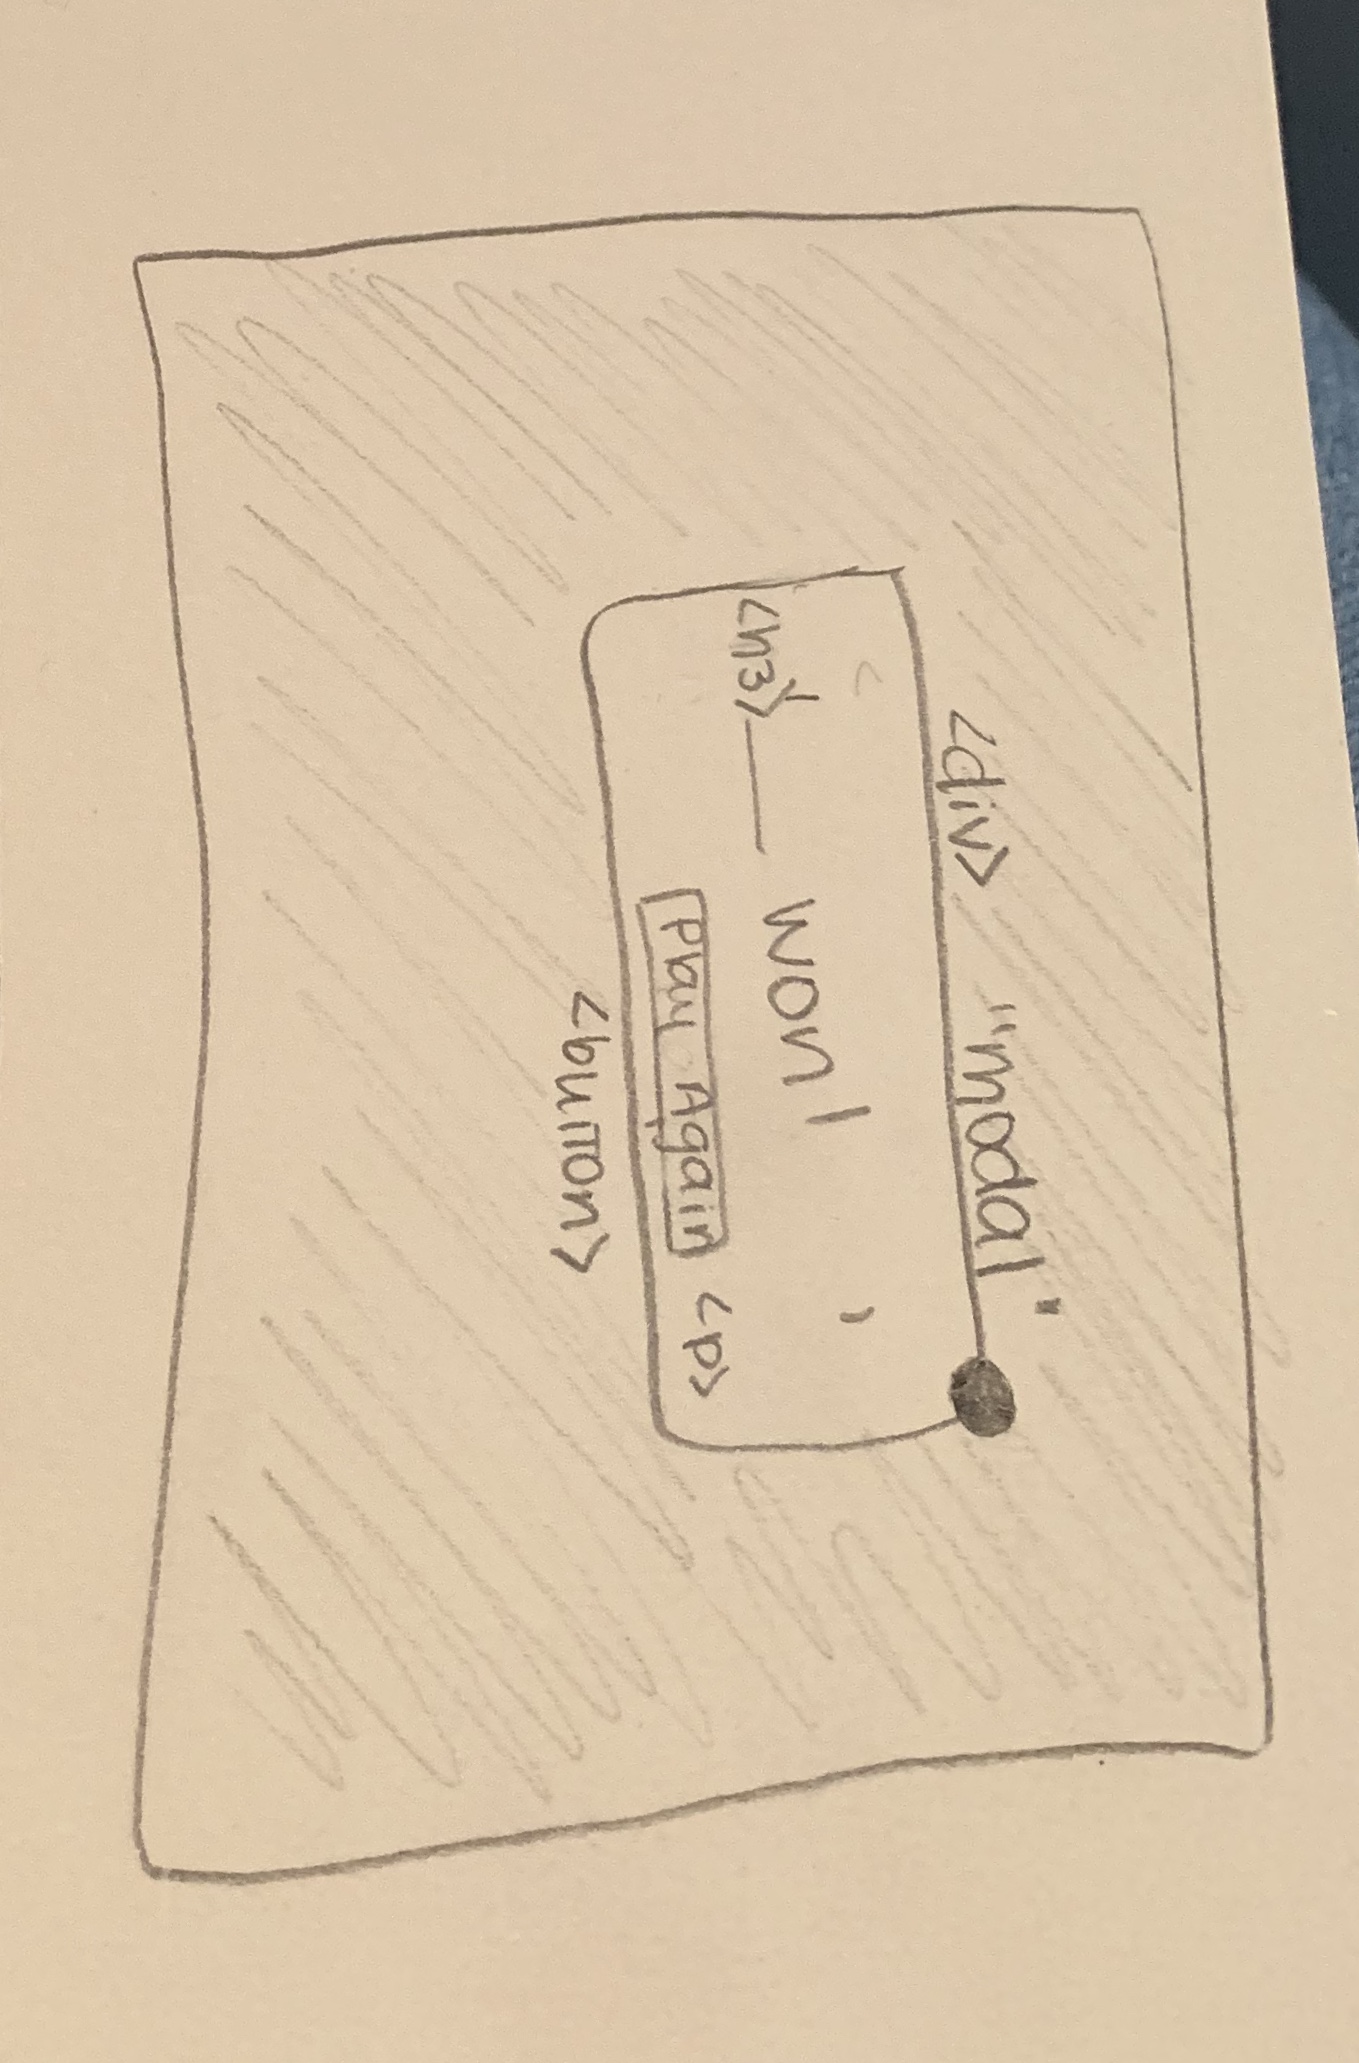 <div> "modal"
<h3> ___ won!
Play Again <p>
<button>